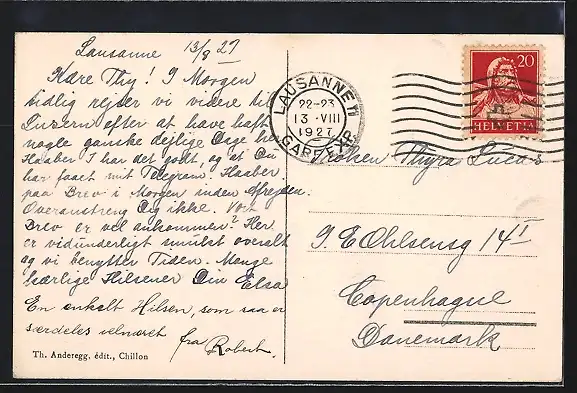 Lausanne 13/8 27
Kære Thy! I Morgen
tidlig rejser vi videre til
Luzern efter at have haft
nogle ganske dejlige Dage her
Haaber I har det godt, og at Du
har faaet mit Telegram. Haaber
paa Brev i Morgen inden Afrejsen.
Overanstreng Dig ikke. Vort
Brev er vel ankommen? Her
er vidunderligt smukt overalt
og vi benytter Tiden. Mange
kærlige Hilsener Din Elsa
En enkelt Hilsen, som saa er
særdeles velmaret
fra Robert.
Th. Anderegg. édit., Chillon
LAUSANNE
22-23
13·VIII
1927
GARE EXP.
20
HELVETIA
Frøken Thyra Lucas
J. E. Ohlsensg 14 I
Copenhague
Danemark